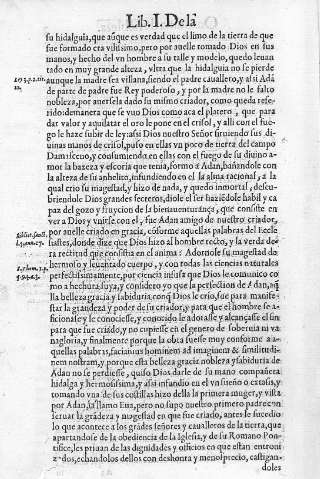 Lib. I. De la
su hidalguia, que aũque es verdad que el limo de la tierra de que
fue formado era vilissimo, pero por auelle tomado Dios en sus
manos, y hecho del vn hombre a su talle y modelo, quedo leuan
tado en muy grande alteza, vltra que la hidalguia no se pierde
aunque la madre sea villana, siendo el padre cauallero, y assi Adã
de parte de padre fue Rey poderoso, y por la madre no le falto
nobleza, por auersela dado su mismo criador, como queda refe-
rido: demanera que se vuo Dios como aca el platero, que para
dar valor y aquilatar el oro le pone en el crisol, y alli con el fue-
go le haze subir de ley: assi Dios nuestro Señor siruiendo sus di-
uinas manos de crisol, puso en ellas vn poco de tierra del campo
Damasceno, y consumiendo en ellas con el fuego de su diuino a-
mor la baxeza y escoria que tenia, formo a Adan, bañandole con
la alteza de su anhelito, infundiendo en el la alma racional, a la
qual crio su magestad, y hizo de nada, y quedo inmortal, descu-
briendole Dios grandes secretos, diole el ser haziẽdole habil y ca
paz del gozo y fruycion de la bienauenturança, que consiste en
ver a Dios y vnirse con el, fue Adan amigo de nuestro criador,
por auelle criado en gracia, cõforme aquellas palabras del Eccle
siastes, donde dize que Dios hizo al hombre recto, y la verda de-
ra rectitud que consistia en el anima: Adornole su magestad de
hermoso y leuãtado cuerpo, y con todas las ciencias naturales
perfectissimamente, por ciencia infusa que Dios le comunico co
mo a hechura suya, y considero yo que la perfection de Adan, aq̃
lla belleza gracia y sabiduria cõ q̃ Dios le crio, fue para manifes-
tar la grandeza y poder de su criador, y para que el hombre se a-
ficionasse y le conociesse, y conocido le adorasse y alcançasse el fin
para que fue criado, y no cupiesse en el genero de soberuia ni va
nagloria, y finalmente porque la obra fuesse muy conforme a a-
quellas palabras, faciamus hominem ad imaginem & similitudi-
nem nostram, y porque esta belleza gracia nobleza y sabiduria de
Adan no se perdiesse, quiso Dios darle de su mano compañera
hidalga y hermosissima, y assi infundio en el vn sueño o extasis, y
tomando vna de sus costillas hizo della la primera muger, y vista
por Adan, la llamo Eua, pero no supo nuestro primero padre con
seruar la grãdeza y magestad en que fue criado, antes le sucedio
lo que acontece a los grãdes señores y caualleros de la tierra, que
apartandose de la obediencia de la Iglesia, y de su Romano Pon-
tifice, les priuan de las dignidades y officios en que estan entroni
zados, echandolos dellos con deshonra y menosprecio, castigan
doles